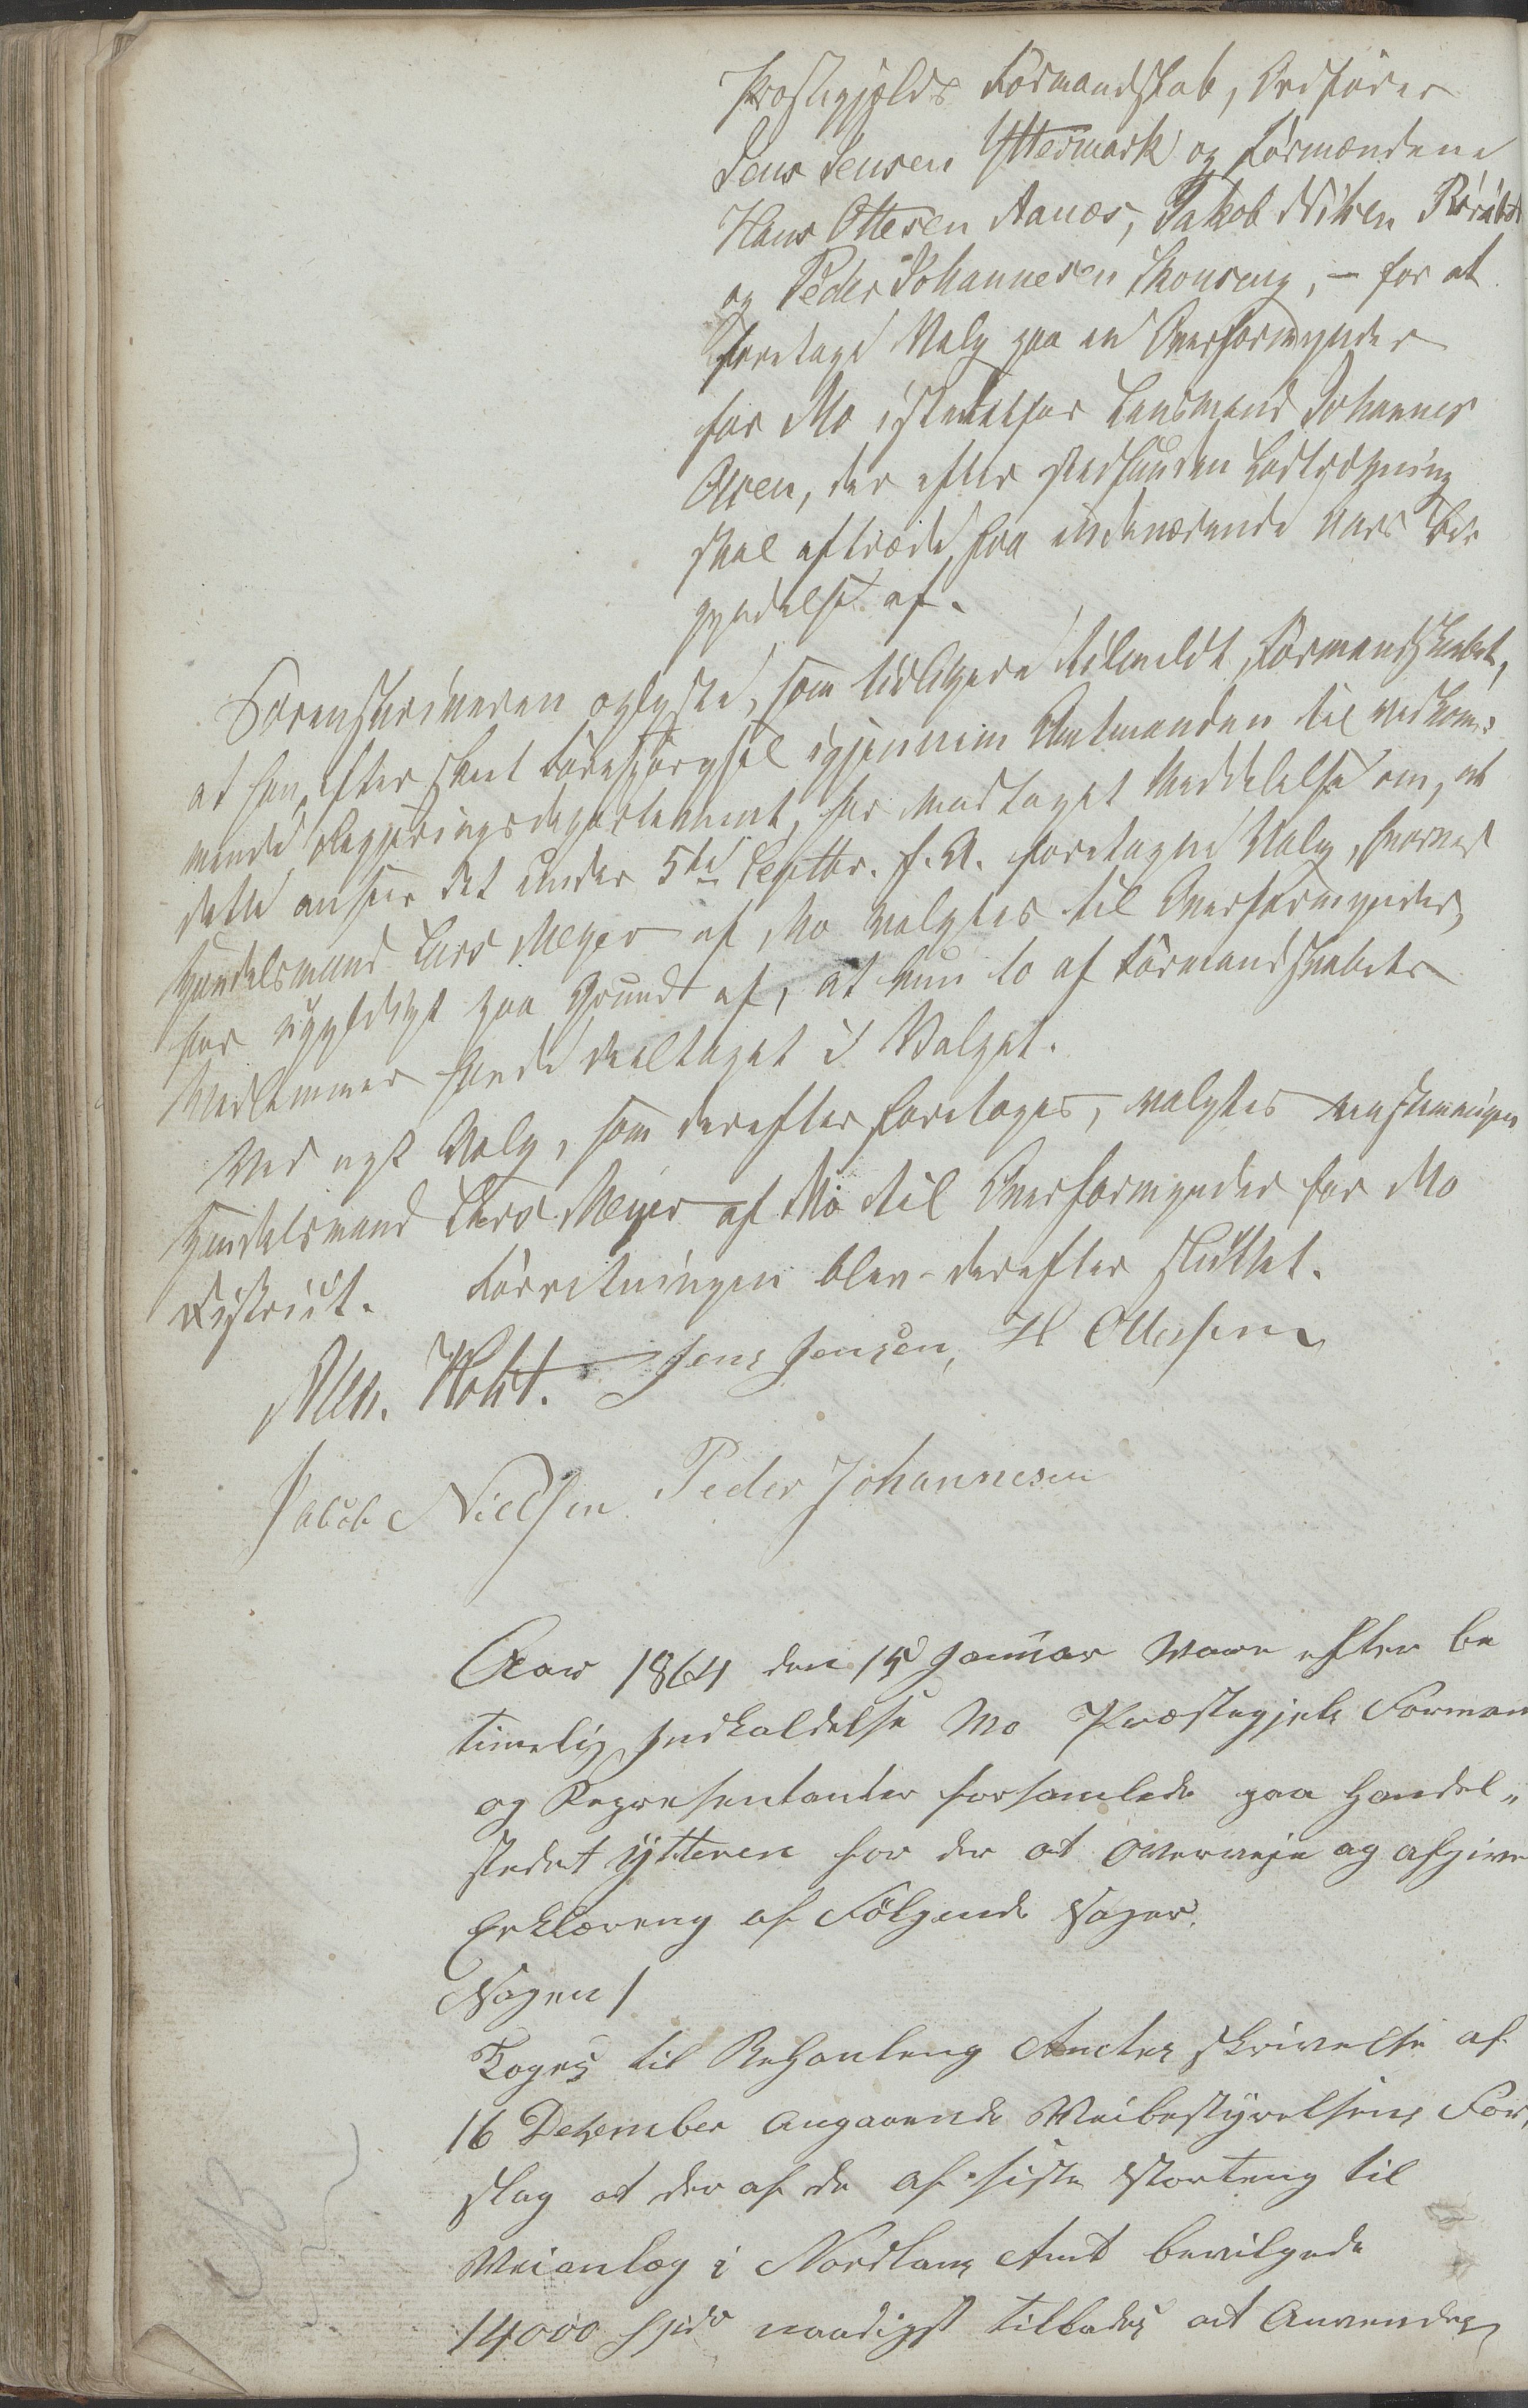 Præstegjelds Formandskab, Ordfører
Jens Jensen Yttermark og Formændene
Hans Ottesen Aanæs, Jakob Nilsen
og Peder Johannesen Skonseng, – for at
foretage Valg paa en Overformynder
for Mo istedetfor Lensmand Johannes
Olsen, der efter stedfunden Lodtrækning
skal aftræde fra indeværende Aars Be
gyndelse af.
Sorenskriveren oplyste, som tidligere tilmeldt Formandskabet,
at han, efter skeet Forespørgsel igjennem Amtmanden til vedkom-
mende Regjeringsdepartement, har modtaget Meddelelse om, at
dette anseer det under 5te Septbr. f. A. foretagne Valg, hvorved
Handelsmand Lars Meyer af Mo valgtes til Overformynder,
for ugyldigt paa Grund af, at kun to af Formandskabets
Medlemmer havde deeltaget i Valget.
Ved nyt Valg, som derefter foretoges, valgtes eenstemmigen
Handelsmand Lars Meyer af Mo til Overformynder for Mo
Distrikt. Forretningen blev derefter sluttet.
Holst. Jens Jensen, H Ottesen
Jacob Nielsen Peder Johannesen
Aar 1864 den 15 Januar Vare efter be
timelig Indkaldelse Mo Præstegjels Forman
og Representanter forsamlede paa Handel„
stedet Ytteren for der at overveje og afgive
Erklæreng af Følgende Sager.
Sagen 1
Toges til Behanleng Amtes Skrivelse af
16 Desember angaaende Veibestyrelsens For,
slag at der af de af siste Storteng til
Veianlæg i Nordlans Amt bevilgede
14000 Spdr naadigst tillades at Anvendes